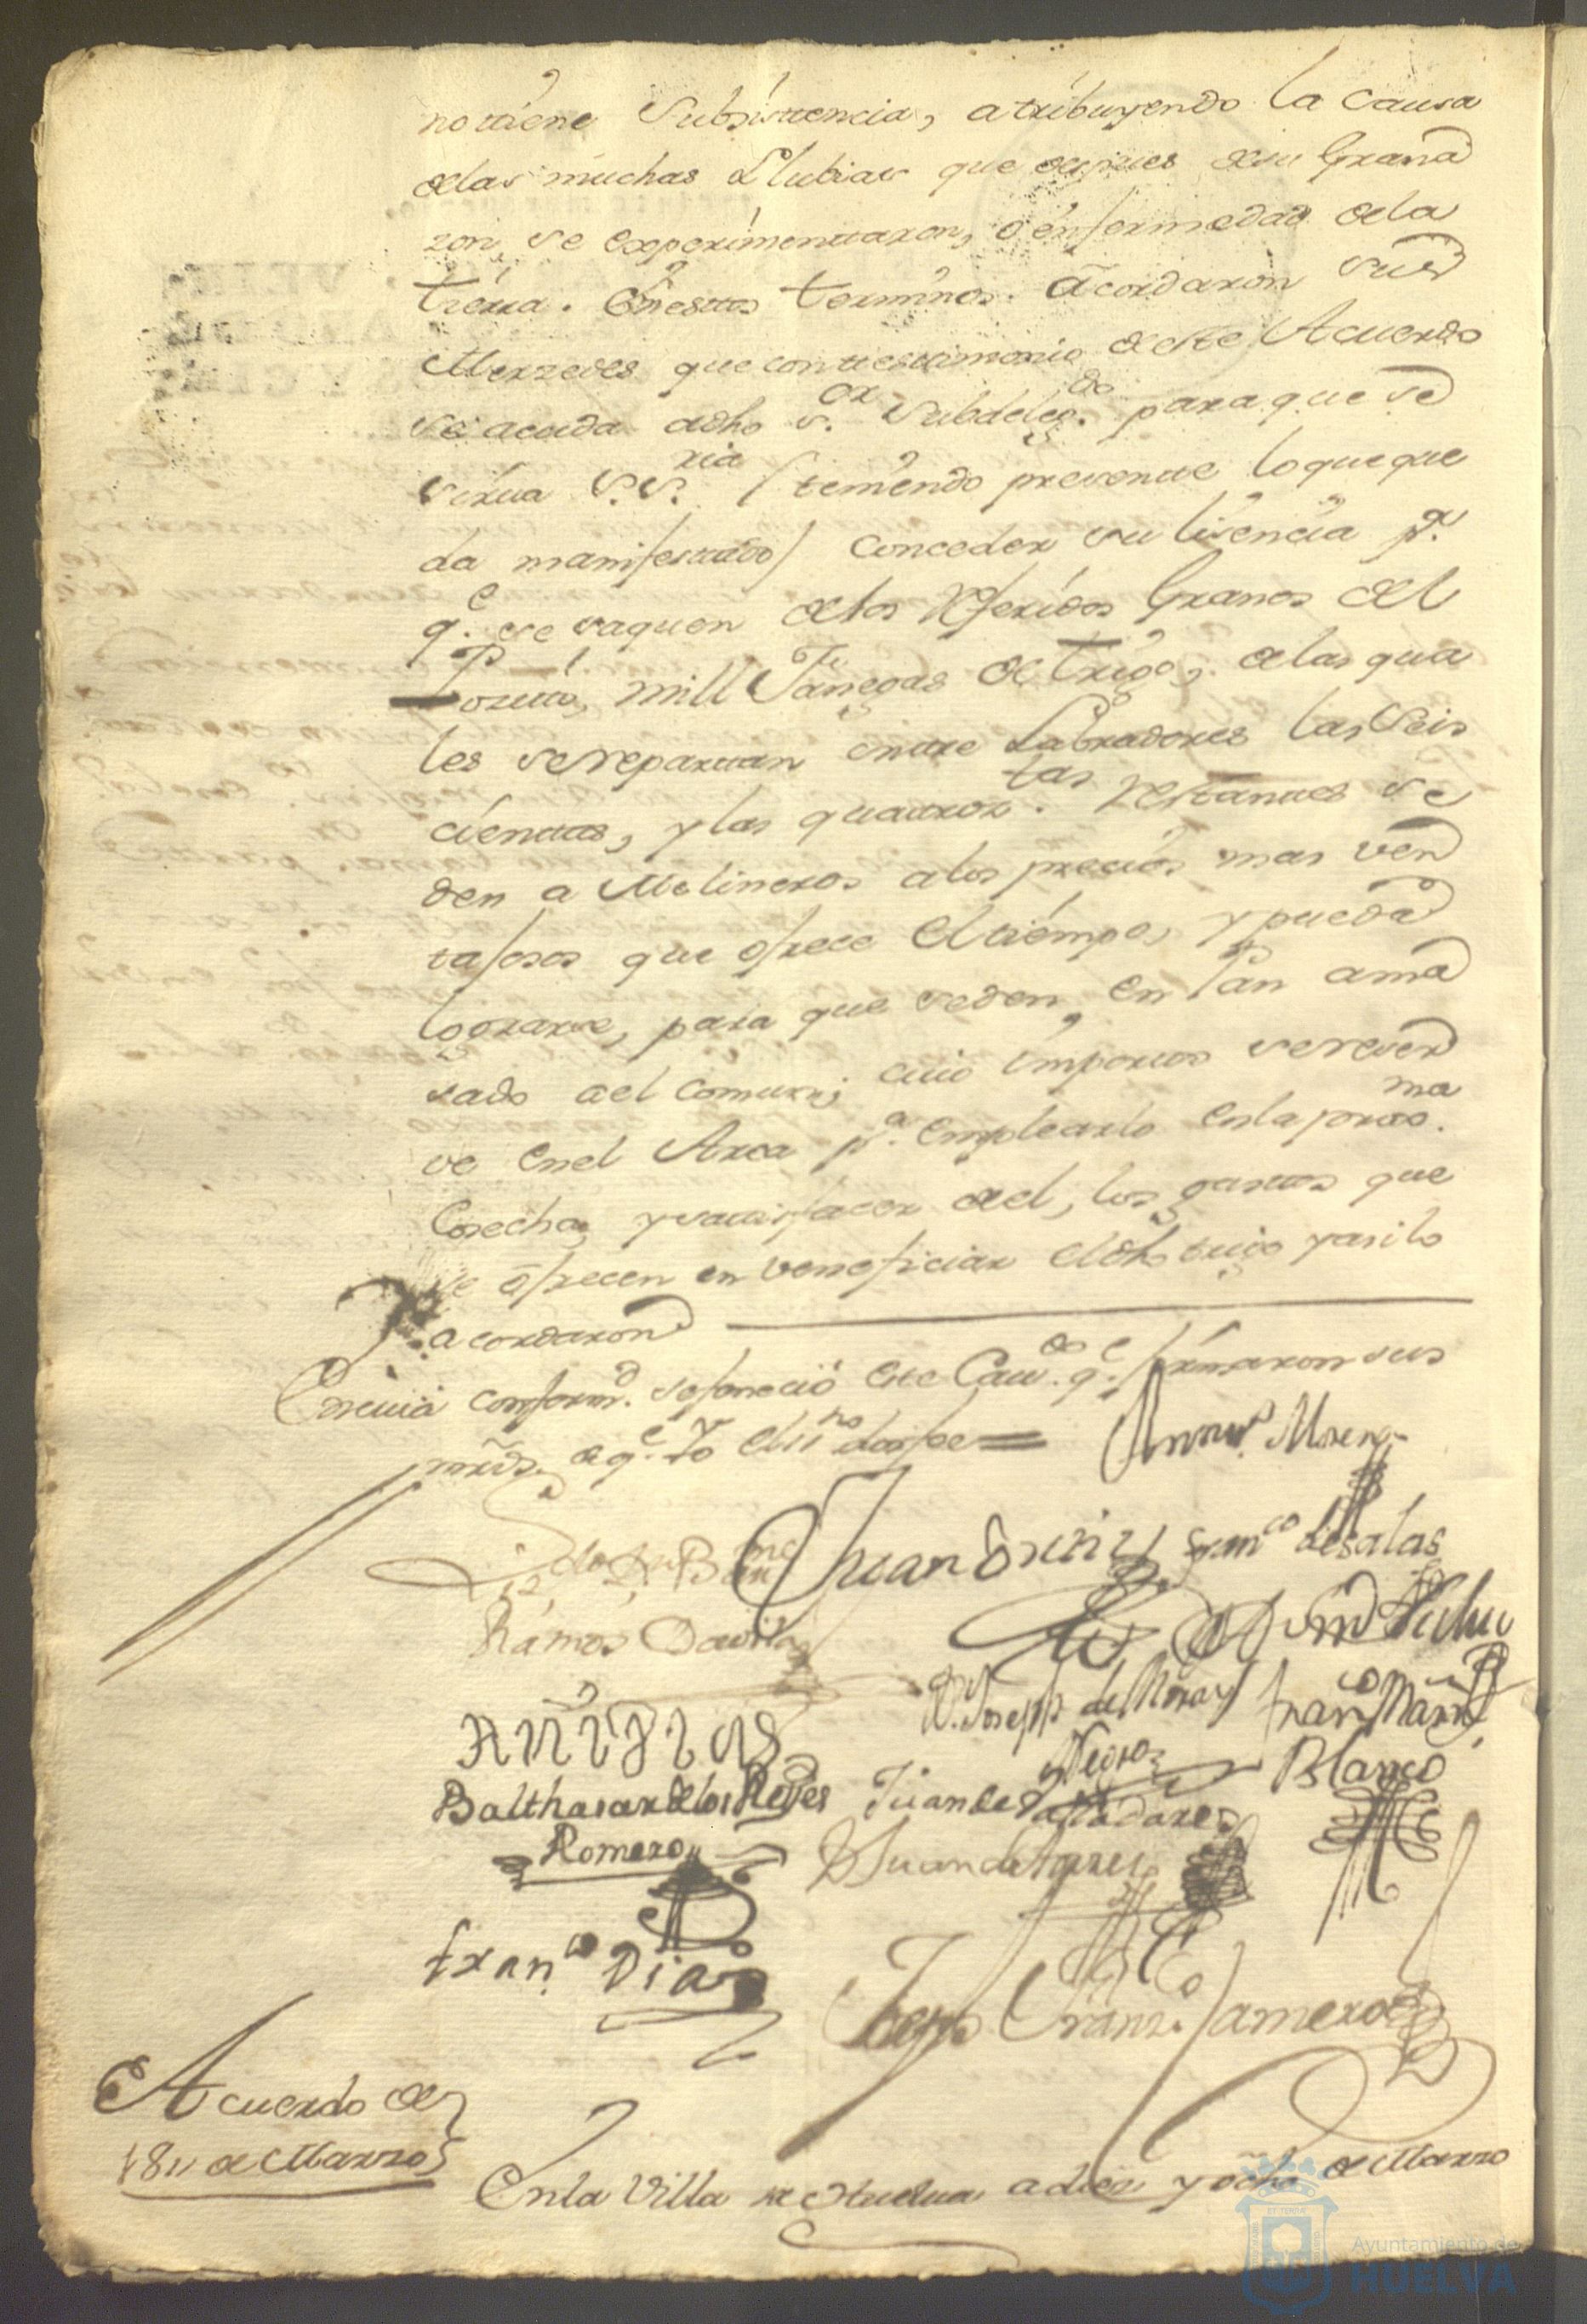 no tiene Subsistencia, atribuyendo la Causa
a las muchas Llubias que despues de su Grana
zon, se experimentaron, o enfermedad de la
tierra. En estos terminos. Acordaron sus
Merzedes que con testimonio de este Acuerdo
se acuda a dho S.or Subdeleg.do para que se
sirva S.S.ria (teniendo presente lo que que
da manifestado) Conceder su lisencia p.a
q.e se saquen de los Referidos Granos del
Posito, mill Fanegas de trigo, de las qua
les se repartan entre Labradores las Seis
cientas, y las quatroz.tas Restantes se
den a Molineros a los precios mas ven
tajosos que ofrece el tiempo, y pueda
lograrse, para que se den, en Pan ama
sado a el Comun; cuio importe se reser
ve en el Arca p.a emplearlo en la prox.ma
Cosecha, y satisfacer de el, los gastos que
se ofrecen en beneficiar el dho trigo y asi lo
acordaron
En cuia conform.d se feneció este Cav.do q.e firmaron sus
mrds. de q.e Yo el ess.no doi fee =
Moreno
Fran.co de Salas
Ramos Davila
D. Joseph de Fran.co Marn
Negro Blanco
Balthasar de los Reyes Juan de
Romero D Juan de
fran.co Dias
Joseph Franz.co Jamero
Acuerdo de
18 de Marzo
En la Villa de Huelva a dies y ocho de Marzo
Ayuntamiento de
HUELVA